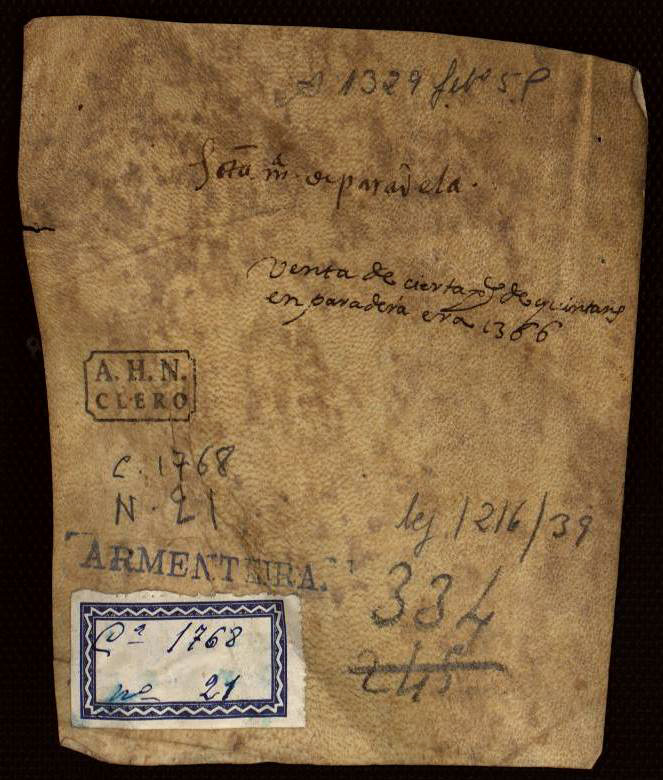 1329 feb° 5
Sctā mā de paradela.
Venta de cierta de quintans
en paradera era 1366
A. H. N.
CLERO
C. 1768
N. 21
leg 1216/39
ARMENTEIRA.
334
245
Cª 1768
nº 21